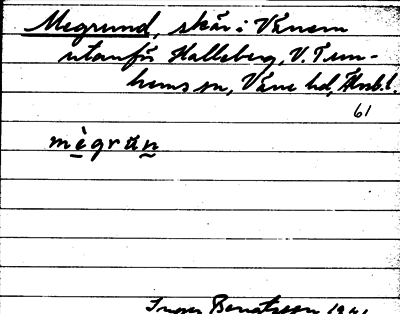 Megrund, skär i Vänern
utanför Halleberg, V. Tun-
hems sn, Väne hd, Älvsb. l.
61
mègrún
Bengtsson